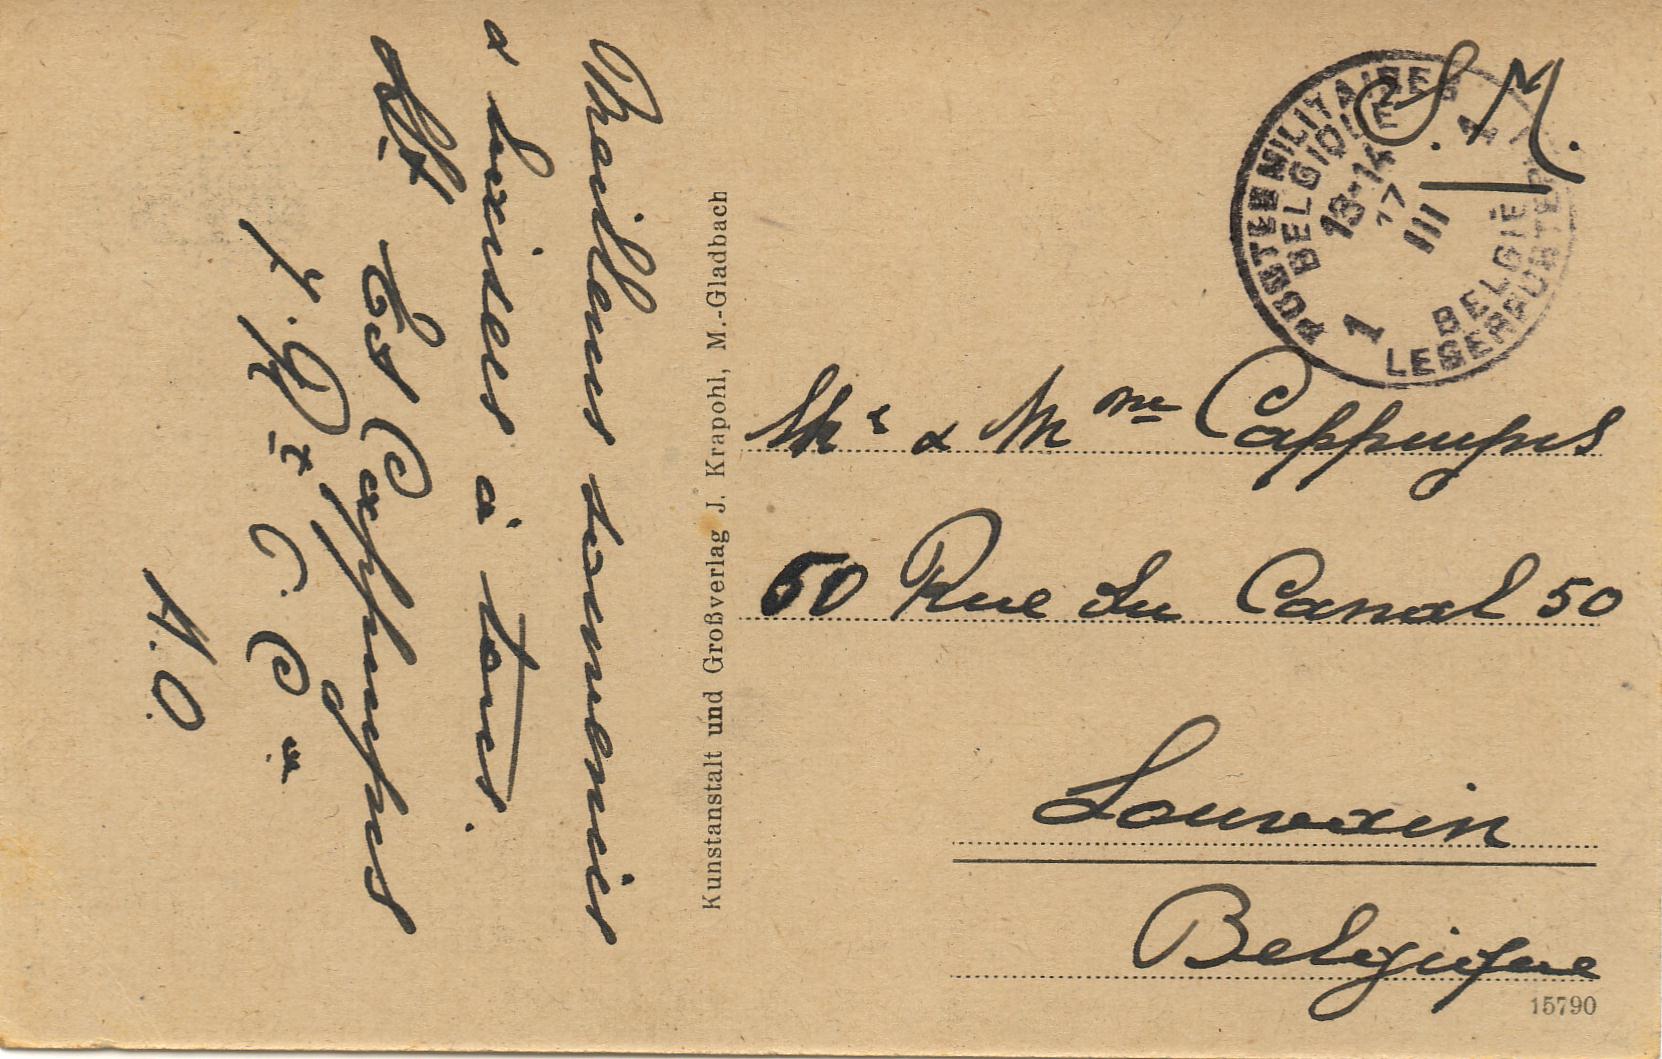 Meilleurs souvenirs
& baisers à tous.
Lt Es Cappuyns
1. Rt C.
A.O.
Kunstanstalt und Großverlag J. Krapohl, M.-Gladbach
S.M.
POSTES MILITAIRES
BELGIQUE
1
13-14
17
III
1
BELGIË
LEGERPOSTERIJ
Mr & Mme Cappuyns
50 Rue du Canal 50
Louvain
Belgique
15790